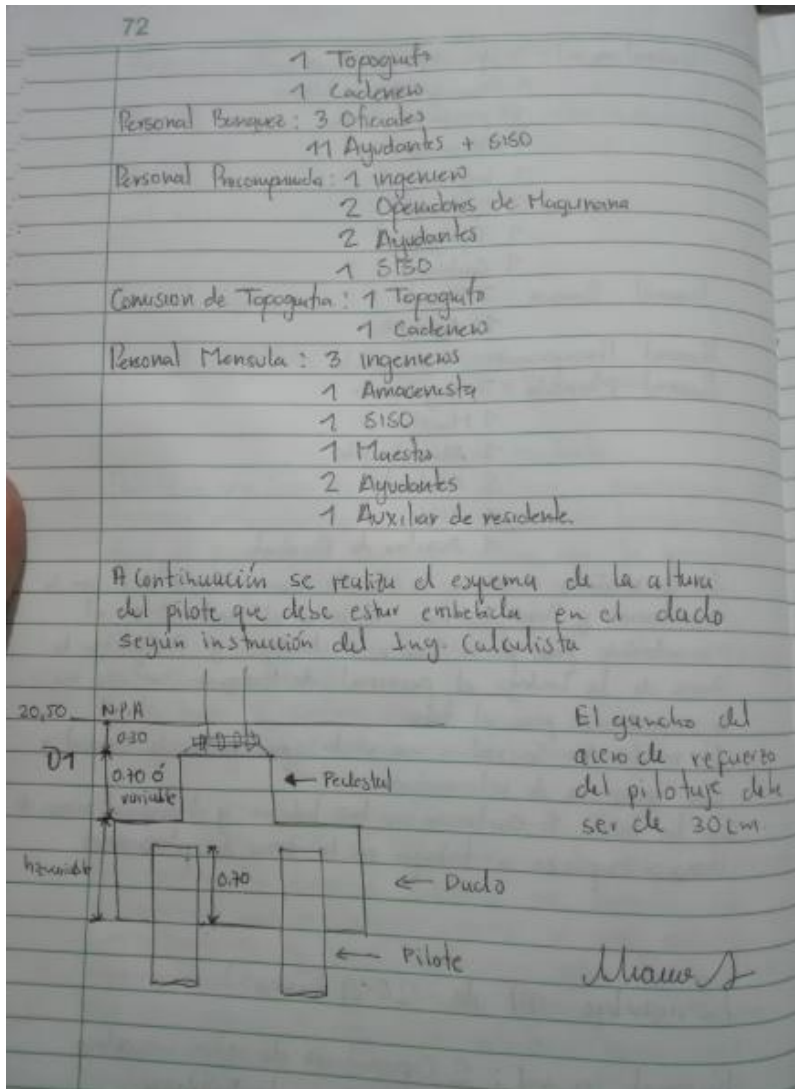 72
1 Topografo
1 Cadenero
Personal Benquez: 3 Oficiales
11 Ayudantes + SISO
Personal Precomprimida: 1 ingeniero
2 Operadores de Maquinaria
2 Ayudantes
1 SISO
Comision de Topografia: 1 Topografo
1 Cadenero
Personal Mensula: 3 ingenieros
1 Almacenista
1 SISO
1 Maestro
2 Ayudantes
1 Auxiliar de residente.
A continuación se realiza el esquema de la altura
del pilote que debe estar embebida en el dado
según instrucción del Ing. Calculista
20,50 N.P.A
0.30
D1
0.70 ó
variable
← Pedestal
h=variable
0.70
← Dado
← Pilote
El gancho del
acero de refuerzo
del pilotaje debe
ser de 30cm